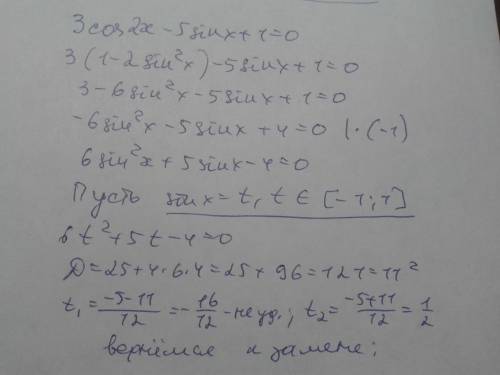 3cos2x - 5sinx + 1 = 0
3(1 - 2sin²x) - 5sinx + 1 = 0
3 - 6sin²x - 5sinx + 1 = 0
-6sin²x - 5sinx + 4 = 0 | · (-1)
6sin²x + 5sinx - 4 = 0
Пусть sinx = t, t ∈ [-1; 1]
6t² + 5t - 4 = 0
D = 25 + 4 · 6 · 4 = 25 + 96 = 121 = 11²
t₁ = (-5-11)/12 = -16/12 - не уд.; t₂ = (-5+11)/12 = 1/2
вернёмся к замене: